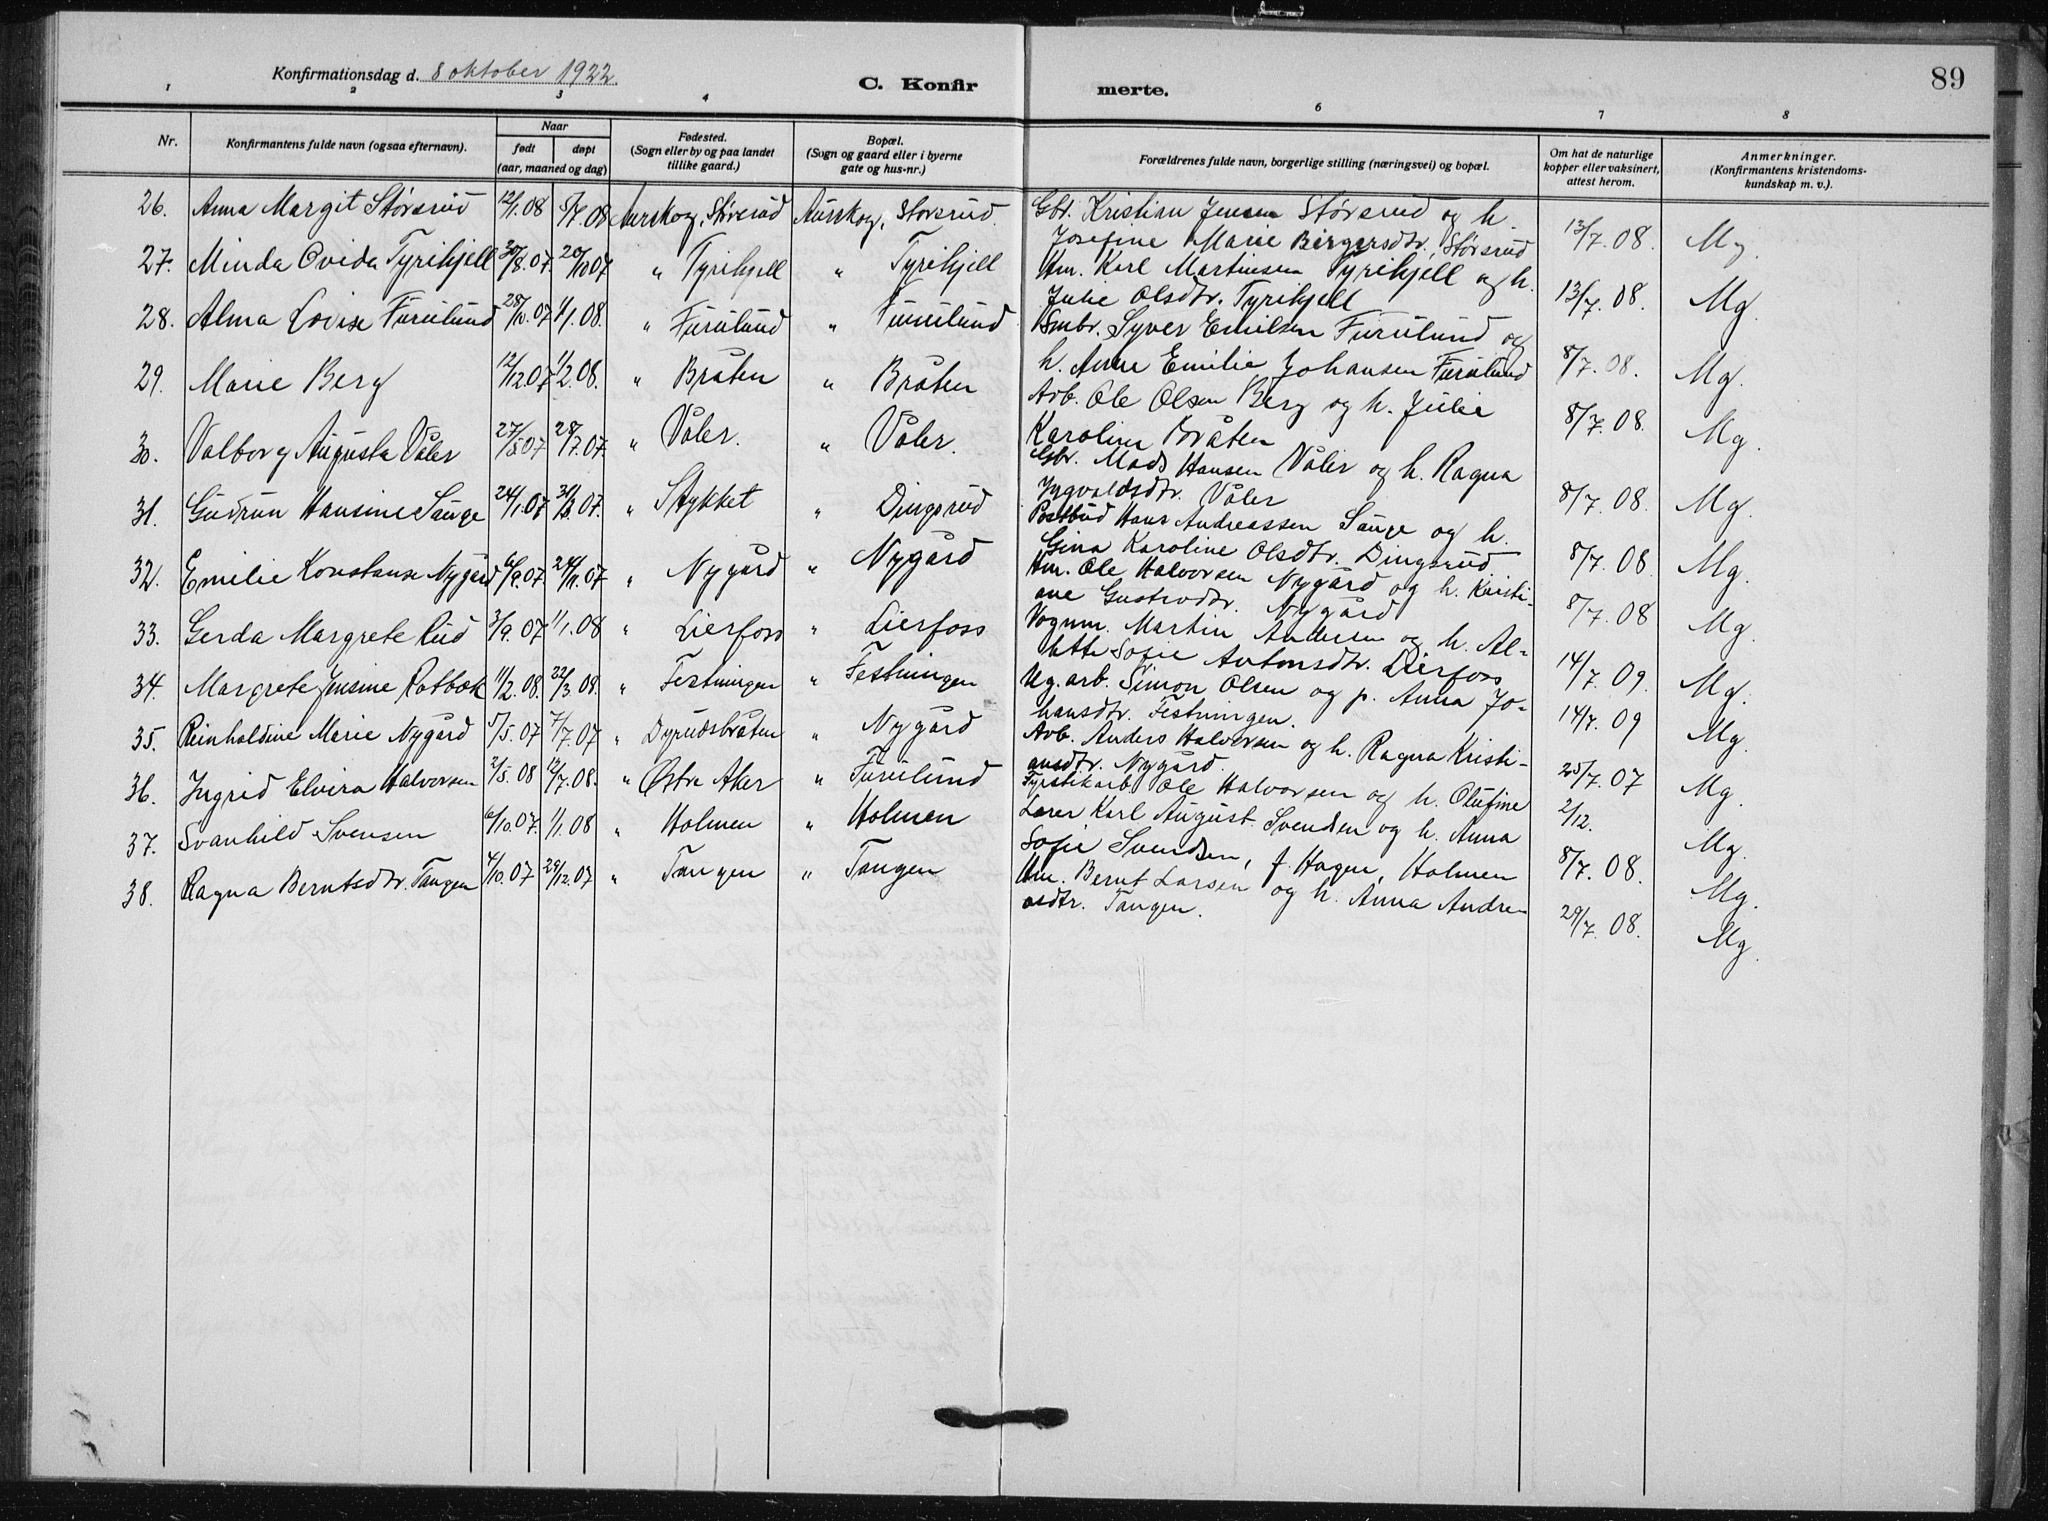 89
Konfirmationsdag d. 8 oktober 1922.
C. Konfirmerte.
1 2 3 4 6 7 8
Nr. Konfirmantens fulde navn (ogsaa efternavn). Naar født døpt (aar, maaned og dag) Fødested. (Sogn eller by og paa landet tillike gaard.) Bopæl. (Sogn og gaard eller i byerne gate og hus-nr.) Forældrenes fulde navn, borgerlige stilling (næringsvei) og bopæl. Om hat de naturlige kopper eller vaksinert, attest herom. Anmerkninger. (Konfirmantens kristendomskundskap m. v.).
26. Anna Margit Størsrud 12/1.08 5/7.08 Aurskog, Størsrud Aurskog, Storsrud. Gbr. Kristian Jensen Størsrud og h.
Josefine Marie Birgersdtr. Størsrud 13/7.08. Mg.
27. Minda Ovida Tyrihjell 30/8.07. 20/10 07 " Tyrihjell " Tyrihjell Hm. Karl Martinsen Tyrihjell og h.
Julie Olsdtr. Tyrihjell 13/7.08. Mg.
28. Alma Lovise Furulund 28/10.07 1/1.08. " Furulund " Furulund Smbr. Syver Emilsen Furulund og
h. Anne Emilie Johansen Furulund 8/7.08. Mg.
29. Marie Berg 12/12 07 1/2.08. " Bråten " Bråten Arb. Ole Olsen Berg og h. Julie
Karoline Bråten 8/7.08. Mg.
30. Valborg Augusta Våler 27/5 07 28/7.07. " Våler. " Våler. Gbr. Mads Hansen Våler og h. Ragna
Yngvoldsdtr. Våler 8/7.08. Mg.
31. Gudrun Hansine Sauge 24/1.07 31/3.07. " Stykket " Dingsrud Postbud Hans Andreassen Sauge og h.
Gina Karoline Olsdtr. Dingsrud 8/7.08 Mg.
32. Emilie Konstanse Nygård 6/9.07 24/11.07 " Nygård " Nygård Hm. Ole Halvorsen Nygård og h. Kristi-
ane Gustavdtr. Nygård 8/7.08 Mg.
33. Gerda Margrete Rud 3/9.07 1/1.08 " Lierfoss " Lierfoss Vognm. Martin Andersen og h. Al-
bette Sofie Antonsdtr. Lierfoss 14/7.09. Mg.
34. Margrete Jensine Rotbæk 11/2.08. 22/3.08. " Festningen " Festningen Ug. arb. Simon Olsen og p. Anna Jo-
hansdtr. Festningen. 14/7.09 Mg.
35. Reinholdine Marie Nygård 5/5.07 7/7.07 " Dyrudsbråten " Nygård Arb. Anders Halvorsen og h. Ragna Kristi-
ansdtr. Nygård. 25/7.07 Mg.
36. Ingrid Elvira Halvorsen 2/5.08 12/7.08. " Østre Aker " Furulund Fyrstikarb. Ole Halvorsen og h. Olufine 2/12. Mg.
37. Svanhild Svensen 6/10.07. 1/1.08 " Holmen " Holmen Lærer Karl August Svendsen og h. Anna
Sofie Svendsen, f. Hagen, Holmen 8/7.08. Mg.
38. Ragna Berntsdtr. Tangen 4/10.07 29/12.07 " Tangen " Tangen Hm. Bernt Larsen og h. Anna Andre-
asdtr. Tangen. 29/7.08. Mg.